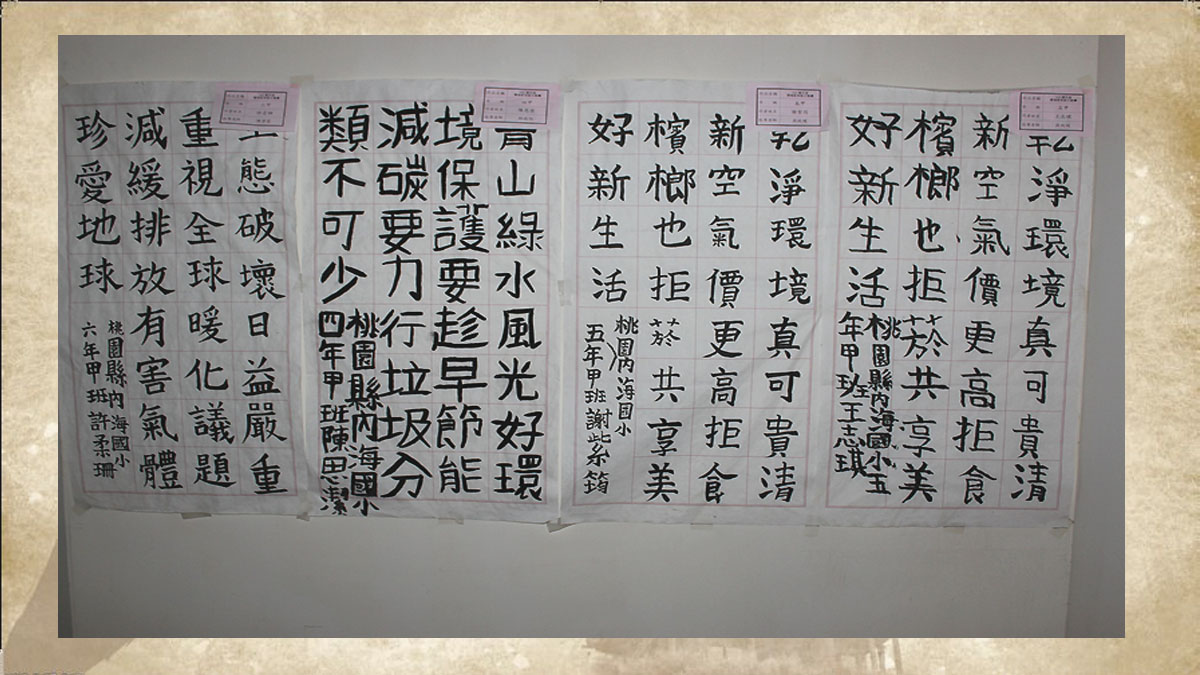 乾淨環境真可貴清
新空氣價更高拒食
檳榔也拒菸共享美
好新生活
桃園縣內海國小五
年甲班王志琪
乾淨環境真可貴清
新空氣價更高拒食
檳榔也拒菸共享美
好新生活
桃園內海國小
五年甲班謝紫筠
青山綠水風光好環
境保護要趁早節能
減碳要力行垃圾分
類不可少
桃園縣內海國小
四年甲班陳思潔
生態破壞日益嚴重
重視全球暖化議題
減緩排放有害氣體
珍愛地球
桃園縣內海國小
六年甲班許柔珊